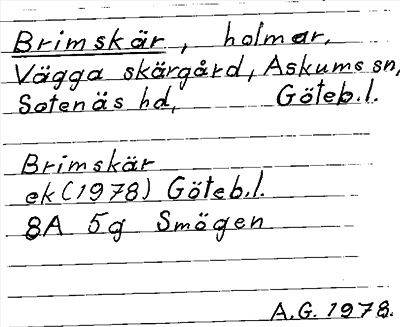 Brimskär, holmar,
Vägga skärgård, Askums sn,
Sotenäs hd, Göteb.l.
Brimskär
ek (1978) Göteb.l.
8A 5g Smögen
A.G. 1978.